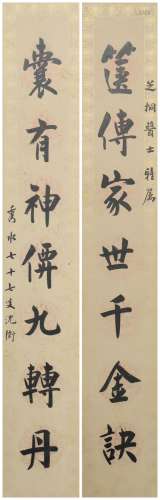 芝桐醫士雅屬
篋傳家世千金訣
囊有神僊九轉丹
秀水七十七叟沈衛